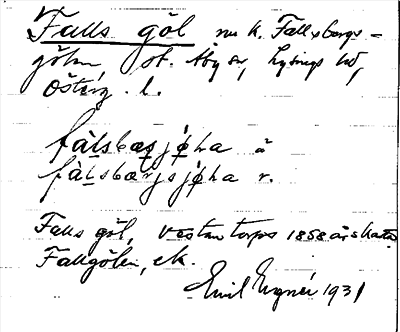 Falls göl nu k. Fallsbergs-
gölen st. Åby sn, Lysings hd,
Österg. l.
fàlsbærsjø̀ha å
fàlsbærjsjø̀ha r.
Falls göl, Västantorps 1858 års karta
Fallgölen, ek.
Emil Egnér 1931